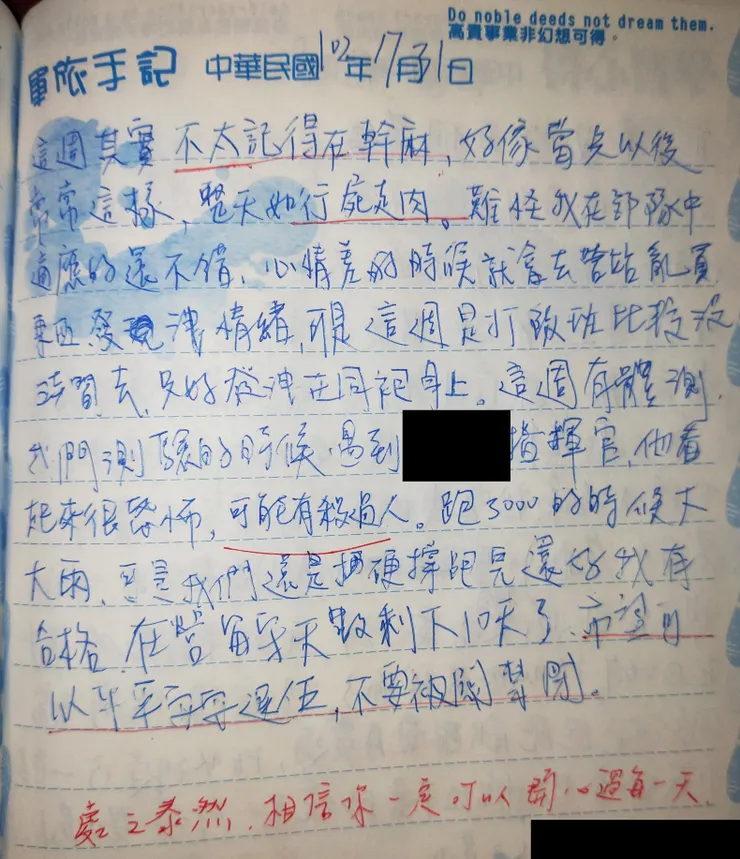 Do noble deeds not dream them.
高貴事業非幻想可得。
軍旅手記 中華民國102年 7月31日
這週其實不太記得在幹麻,好像當兵以後
常常這樣,整天如行屍走肉。難怪我在部隊中
適應的還不錯,心情差的時候就會去營站亂買
東西發洩情緒,可是這週是打飯班比較沒
時間去,只好發洩在同袍身上。這週有體測,
我們測驗的時候遇到 指揮官,他看
起來很恐怖,可能有殺過人。跑3000的時候大
大雨,可是我們還是硬撐跑完還好我有
合格,在營留守天數剩下10天了,希望可
以平平安安退伍,不要被關禁閉。
處之泰然,相信你一定可以開心過每一天